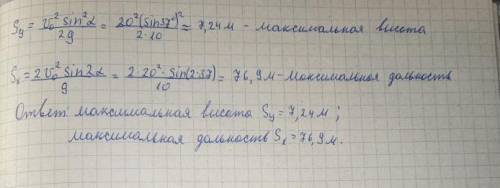 Sy = v₀² sin²α / 2g = 20² (sin 37°)² / 2·10 = 7,24 м - максимальная высота
Sₓ = 2v₀² sin2α / g = 2·20²·sin(2·37) / 10 = 76,9 м - максимальная дальность
Ответ: максимальная высота Sy = 7,24 м ;
максимальная дальность Sₓ = 76,9 м.